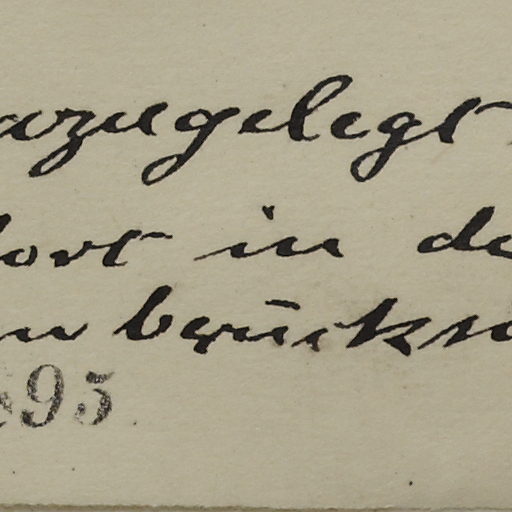 azugelegt
dort in de
n brücksi
895